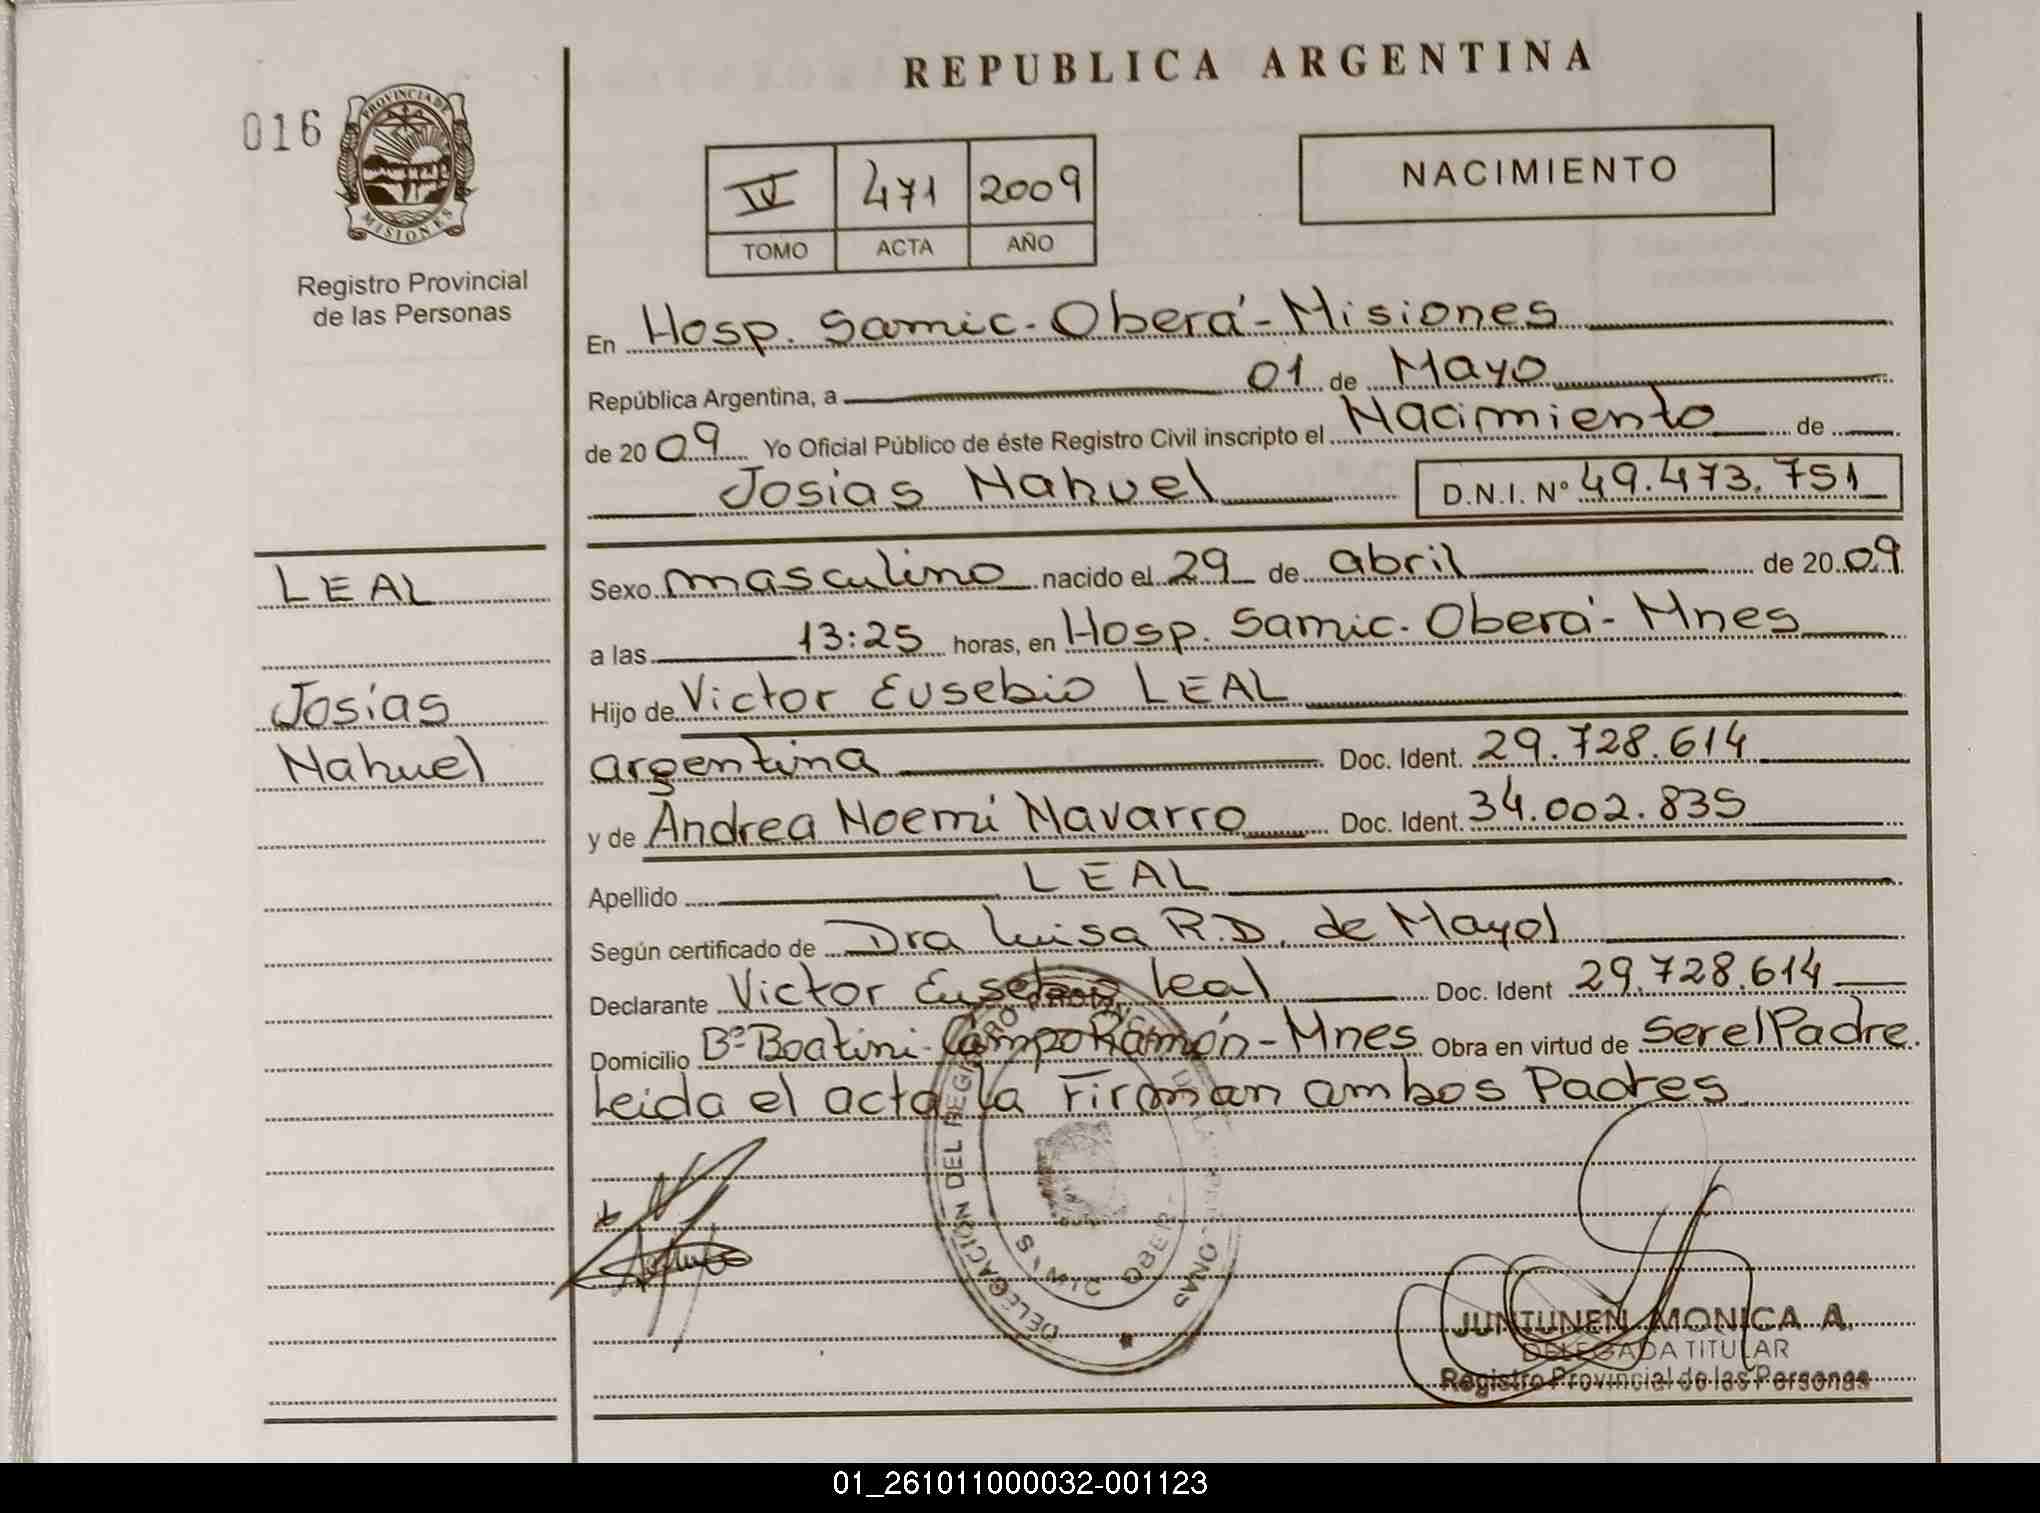 REPUBLICA ARGENTINA
016
PROVINCIA DE
MISIONES
Registro Provincial
de las Personas
IV 471 2009
TOMO ACTA AÑO
NACIMIENTO
En Hosp. Samic. Oberá - Misiones
República Argentina, a 01 de Mayo
de 2009 Yo Oficial Público de éste Registro Civil inscripto el Nacimiento de
Josias Nahuel D.N.I. Nº 49.473.751
LEAL
Josías
Nahuel
Sexo masculino nacido el 29 de abril de 2009
a las 13:25 horas, en Hosp. Samic. Oberá - Mnes
Hijo de Victor Eusebio LEAL
argentina Doc. Ident. 29.728.614
y de Andrea Noemí Navarro Doc. Ident. 34.002.835
Apellido LEAL
Según certificado de Dra Luisa R.D. de Mayol
Declarante Victor Eusebio Leal Doc. Ident 29.728.614
Domicilio Bº Boatini - Campo Ramón - Mnes Obra en virtud de Ser el Padre.
Leida el acta la Firman ambos Padres
DELEGACION DEL REGISTRO
JUNTUNEN MONICA A.
DELEGADA TITULAR
Registro Provincial de las Personas
01_261011000032-001123